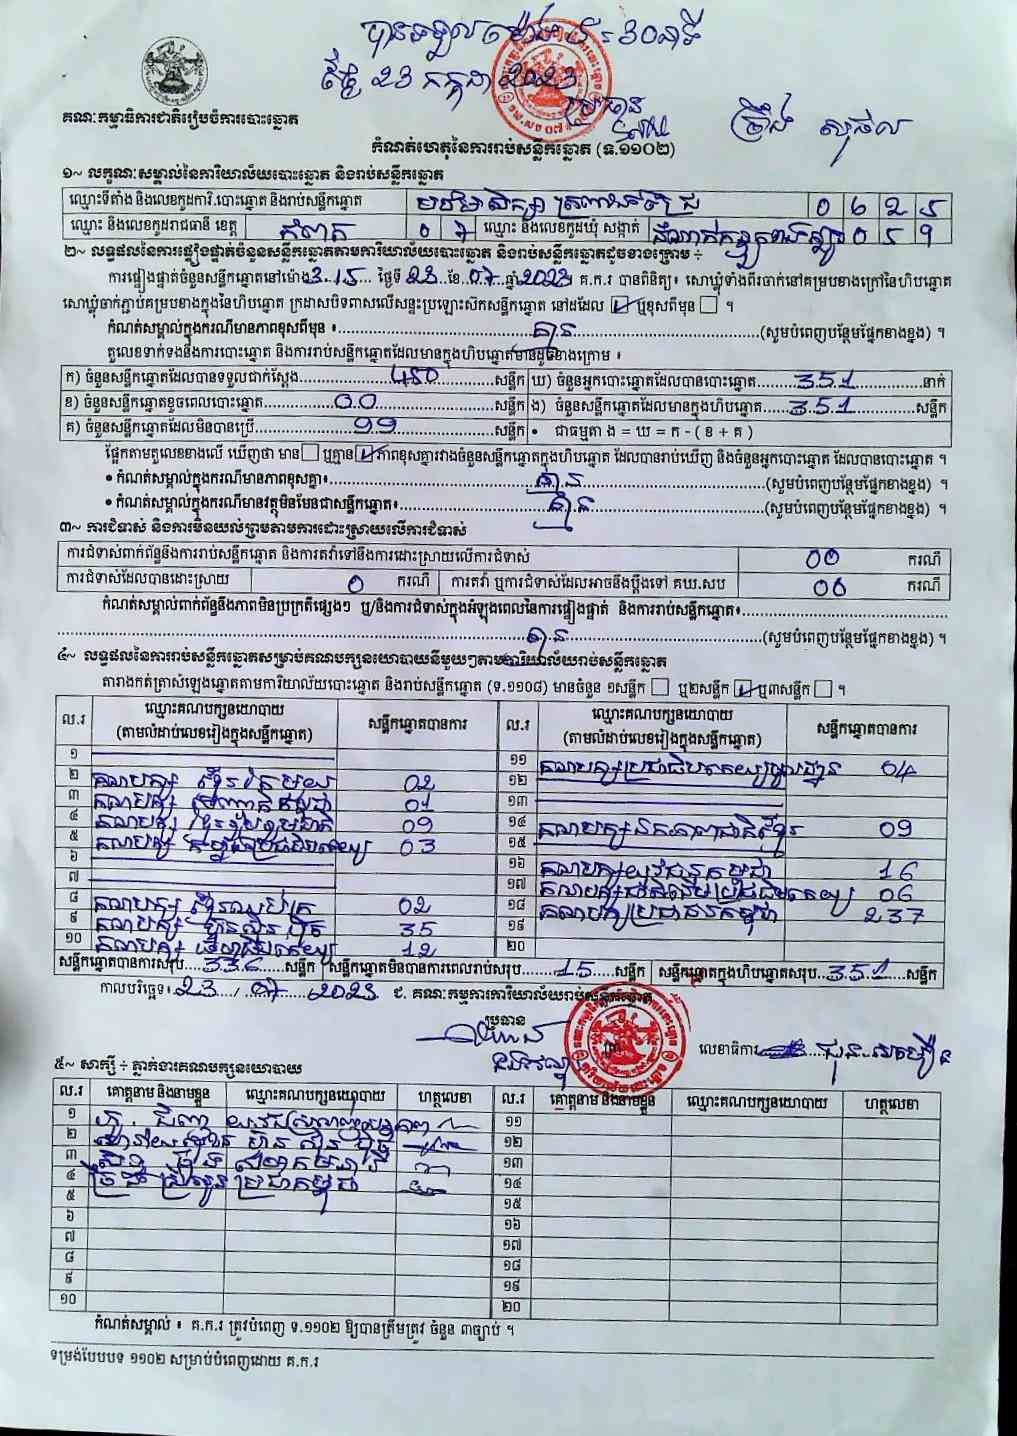 បានទទួលម៉ោង ៨ : 30នាទី
ថ្ងៃ 23 កក្កដា 2023
ប្រធាន
គណៈកម្មាធិការជាតិរៀបចំការបោះឆ្នោត
កំណត់ហេតុនៃការរាប់សន្លឹកឆ្នោត (ទ.១១០២)
១~ លក្ខណៈសម្គាល់នៃការិយាល័យបោះឆ្នោត និងរាប់សន្លឹកឆ្នោត
ឈ្មោះទីតាំង និងលេខកូដការិ.បោះឆ្នោត និងរាប់សន្លឹកឆ្នោត
ឈ្មោះ និងលេខកូដរាជធានី ខេត្ត កំពត 0 7 ឈ្មោះ និងលេខកូដឃុំ សង្កាត់
២~ លទ្ធផលនៃការផ្ទៀងផ្ទាត់ចំនួនសន្លឹកឆ្នោតតាមការិយាល័យបោះឆ្នោត និងរាប់សន្លឹកឆ្នោតដូចខាងក្រោម ÷
ការផ្ទៀងផ្ទាត់ចំនួនសន្លឹកឆ្នោតនៅម៉ោង 3:15 ថ្ងៃទី 23 ខែ 07 ឆ្នាំ 2023 គ.ក.រ បានពិនិត្យ៖ សោឃ្លុំទាំងពីរចាក់នៅគម្របខាងក្រៅនៃហិបឆ្នោត
សោឃ្លុំចាក់ភ្ជាប់គម្របខាងក្នុងនៃហិបឆ្នោត ក្រដាសបិទពាសលើសន្ទះប្រឡោះសិកសន្លឹកឆ្នោត នៅដដែល ☑ ឬខុសពីមុន ☐ ។
កំណត់សម្គាល់ក្នុងករណីមានភាពខុសពីមុន ៖ គ្មាន (សូមបំពេញបន្ថែមផ្នែកខាងខ្នង) ។
តួលេខទាក់ទងនឹងការបោះឆ្នោត និងការរាប់សន្លឹកឆ្នោតដែលមានក្នុងហិបឆ្នោតមានដូចខាងក្រោម ៖
ក) ចំនួនសន្លឹកឆ្នោតដែលបានទទួលជាក់ស្តែង 450 សន្លឹក ឃ) ចំនួនអ្នកបោះឆ្នោតដែលបានបោះឆ្នោត 351 នាក់
ខ) ចំនួនសន្លឹកឆ្នោតខូចពេលបោះឆ្នោត 00 សន្លឹក ង) ចំនួនសន្លឹកឆ្នោតដែលមានក្នុងហិបឆ្នោត 351 សន្លឹក
គ) ចំនួនសន្លឹកឆ្នោតដែលមិនបានប្រើ 99 សន្លឹក • ជាធម្មតា ង = ឃ = ក - ( ខ + គ )
ផ្អែកតាមតួលេខខាងលើ ឃើញថា មាន ☐ ឬគ្មាន ☑ ភាពខុសគ្នារវាងចំនួនសន្លឹកឆ្នោតក្នុងហិបឆ្នោត ដែលបានរាប់ឃើញ និងចំនួនអ្នកបោះឆ្នោត ដែលបានបោះឆ្នោត ។
• កំណត់សម្គាល់ក្នុងករណីមានភាពខុសគ្នា៖ គ្មាន (សូមបំពេញបន្ថែមផ្នែកខាងខ្នង) ។
• កំណត់សម្គាល់ក្នុងករណីមានវត្ថុមិនមែនជាសន្លឹកឆ្នោត៖ គ្មាន (សូមបំពេញបន្ថែមផ្នែកខាងខ្នង) ។
៣~ ការជំទាស់ និងការមិនយល់ព្រមតាមការដោះស្រាយលើការជំទាស់
ការជំទាស់ពាក់ព័ន្ធនឹងការរាប់សន្លឹកឆ្នោត និងការតវ៉ាទៅនឹងការដោះស្រាយលើការជំទាស់ 00 ករណី
ការជំទាស់ដែលបានដោះស្រាយ 0 ករណី ការតវ៉ា ឬការជំទាស់ដែលអាចនឹងប្តឹងទៅ គឃ.សប 00 ករណី
កំណត់សម្គាល់ពាក់ព័ន្ធនឹងភាពមិនប្រក្រតីផ្សេងៗ ឬ/និងការជំទាស់ក្នុងអំឡុងពេលនៃការផ្ទៀងផ្ទាត់ និងការរាប់សន្លឹកឆ្នោត៖
គ្មាន (សូមបំពេញបន្ថែមផ្នែកខាងខ្នង) ។
៤~ លទ្ធផលនៃការរាប់សន្លឹកឆ្នោតសម្រាប់គណបក្សនយោបាយនីមួយៗតាមការិយាល័យរាប់សន្លឹកឆ្នោត
តារាងកត់ត្រាសំឡេងឆ្នោតតាមការិយាល័យបោះឆ្នោត និងរាប់សន្លឹកឆ្នោត (ទ.១១០៨) មានចំនួន ១សន្លឹក ☐ ឬ២សន្លឹក ☑ ឬ៣សន្លឹក ☐ ។
ល.រ ឈ្មោះគណបក្សនយោបាយ (តាមលំដាប់លេខរៀងក្នុងសន្លឹកឆ្នោត) សន្លឹកឆ្នោតបានការ ល.រ ឈ្មោះគណបក្សនយោបាយ (តាមលំដាប់លេខរៀងក្នុងសន្លឹកឆ្នោត) សន្លឹកឆ្នោតបានការ
១ ១១ គណបក្សប្រជាធិបតេយ្យមូលដ្ឋាន 04
២ គណបក្ស ខ្មែររួបរួម 02 ១២
៣ គណបក្ស 01 ១៣
៤ គណបក្ស 09 ១៤ គណបក្សឯកភាពជាតិខ្មែរ 09
៥ គណបក្ស កម្ពុជា 03 ១៥
៦ ១៦ គណបក្សយុវជនកម្ពុជា 16
៧ ១៧ គណបក្ស 06
៨ គណបក្ស 02 ១៨ គណបក្សប្រជាជនកម្ពុជា 237
៩ គណបក្ស ហ៊្វុនស៊ិនប៉ិច 35 ១៩
១០ គណបក្ស 12 ២០
សន្លឹកឆ្នោតបានការសរុប 336 សន្លឹក សន្លឹកឆ្នោតមិនបានការពេលរាប់សរុប 15 សន្លឹក សន្លឹកឆ្នោតក្នុងហិបឆ្នោតសរុប 351 សន្លឹក
កាលបរិច្ឆេទ៖ 23 / 07 / 2023 ជ. គណៈកម្មការការិយាល័យរាប់សន្លឹកឆ្នោត
ប្រធាន
លេខាធិការ
៥~ សាក្សី ÷ ភ្នាក់ងារគណបក្សនយោបាយ
ល.រ គោត្តនាម និងនាមខ្លួន ឈ្មោះគណបក្សនយោបាយ ហត្ថលេខា ល.រ គោត្តនាម និងនាមខ្លួន ឈ្មោះគណបក្សនយោបាយ ហត្ថលេខា
១ ១១
២ ១២
៣ ១៣
៤ ១៤
៥ ១៥
៦ ១៦
៧ ១៧
៨ ១៨
៩ ១៩
១០ ២០
កំណត់សម្គាល់ ៖ គ.ក.រ ត្រូវបំពេញ ទ.១១០២ ឱ្យបានត្រឹមត្រូវ ចំនួន ៣ច្បាប់ ។
ទម្រង់បែបបទ ១១០២ សម្រាប់បំពេញដោយ គ.ក.រ